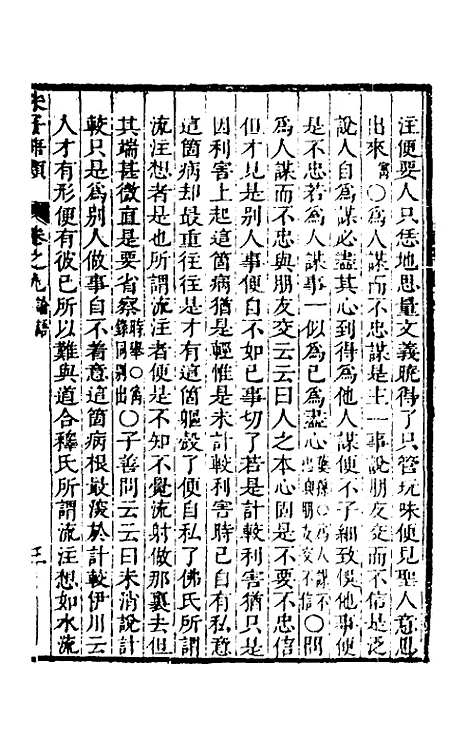 注便要人只恁地思量文義曉得了只管玩味便見聖人意思
出來㝢〇爲人謀而不忠謀是主一事說朋友交而不信是泛
說人自爲謀必盡其心到得爲他人謀便不子細致悞他事便
是不忠若爲人謀事一似爲己爲盡心〇問
爲人謀而不忠與朋友交云云曰人之本心固是不要不忠信
但才見是別人事便自不如己事切了若是計較利害猶只是
因利害上起這箇病猶是輕惟是未計較利害時已自有私意
這箇病却最重往往是才有這箇軀殼了便自私了佛氏所謂
流注想者是也所謂流注者便是不知不覺流射做那裏去但
其端甚微直是要省察時舉〇㝢錄同別出〇子善問云云曰未消說計
較只是爲別人做事自不着意這箇病根最深於計較伊川云
人才有形便有彼已所以難與道合釋氏所謂流注想如水流
朱子語類 卷之九 論語 三